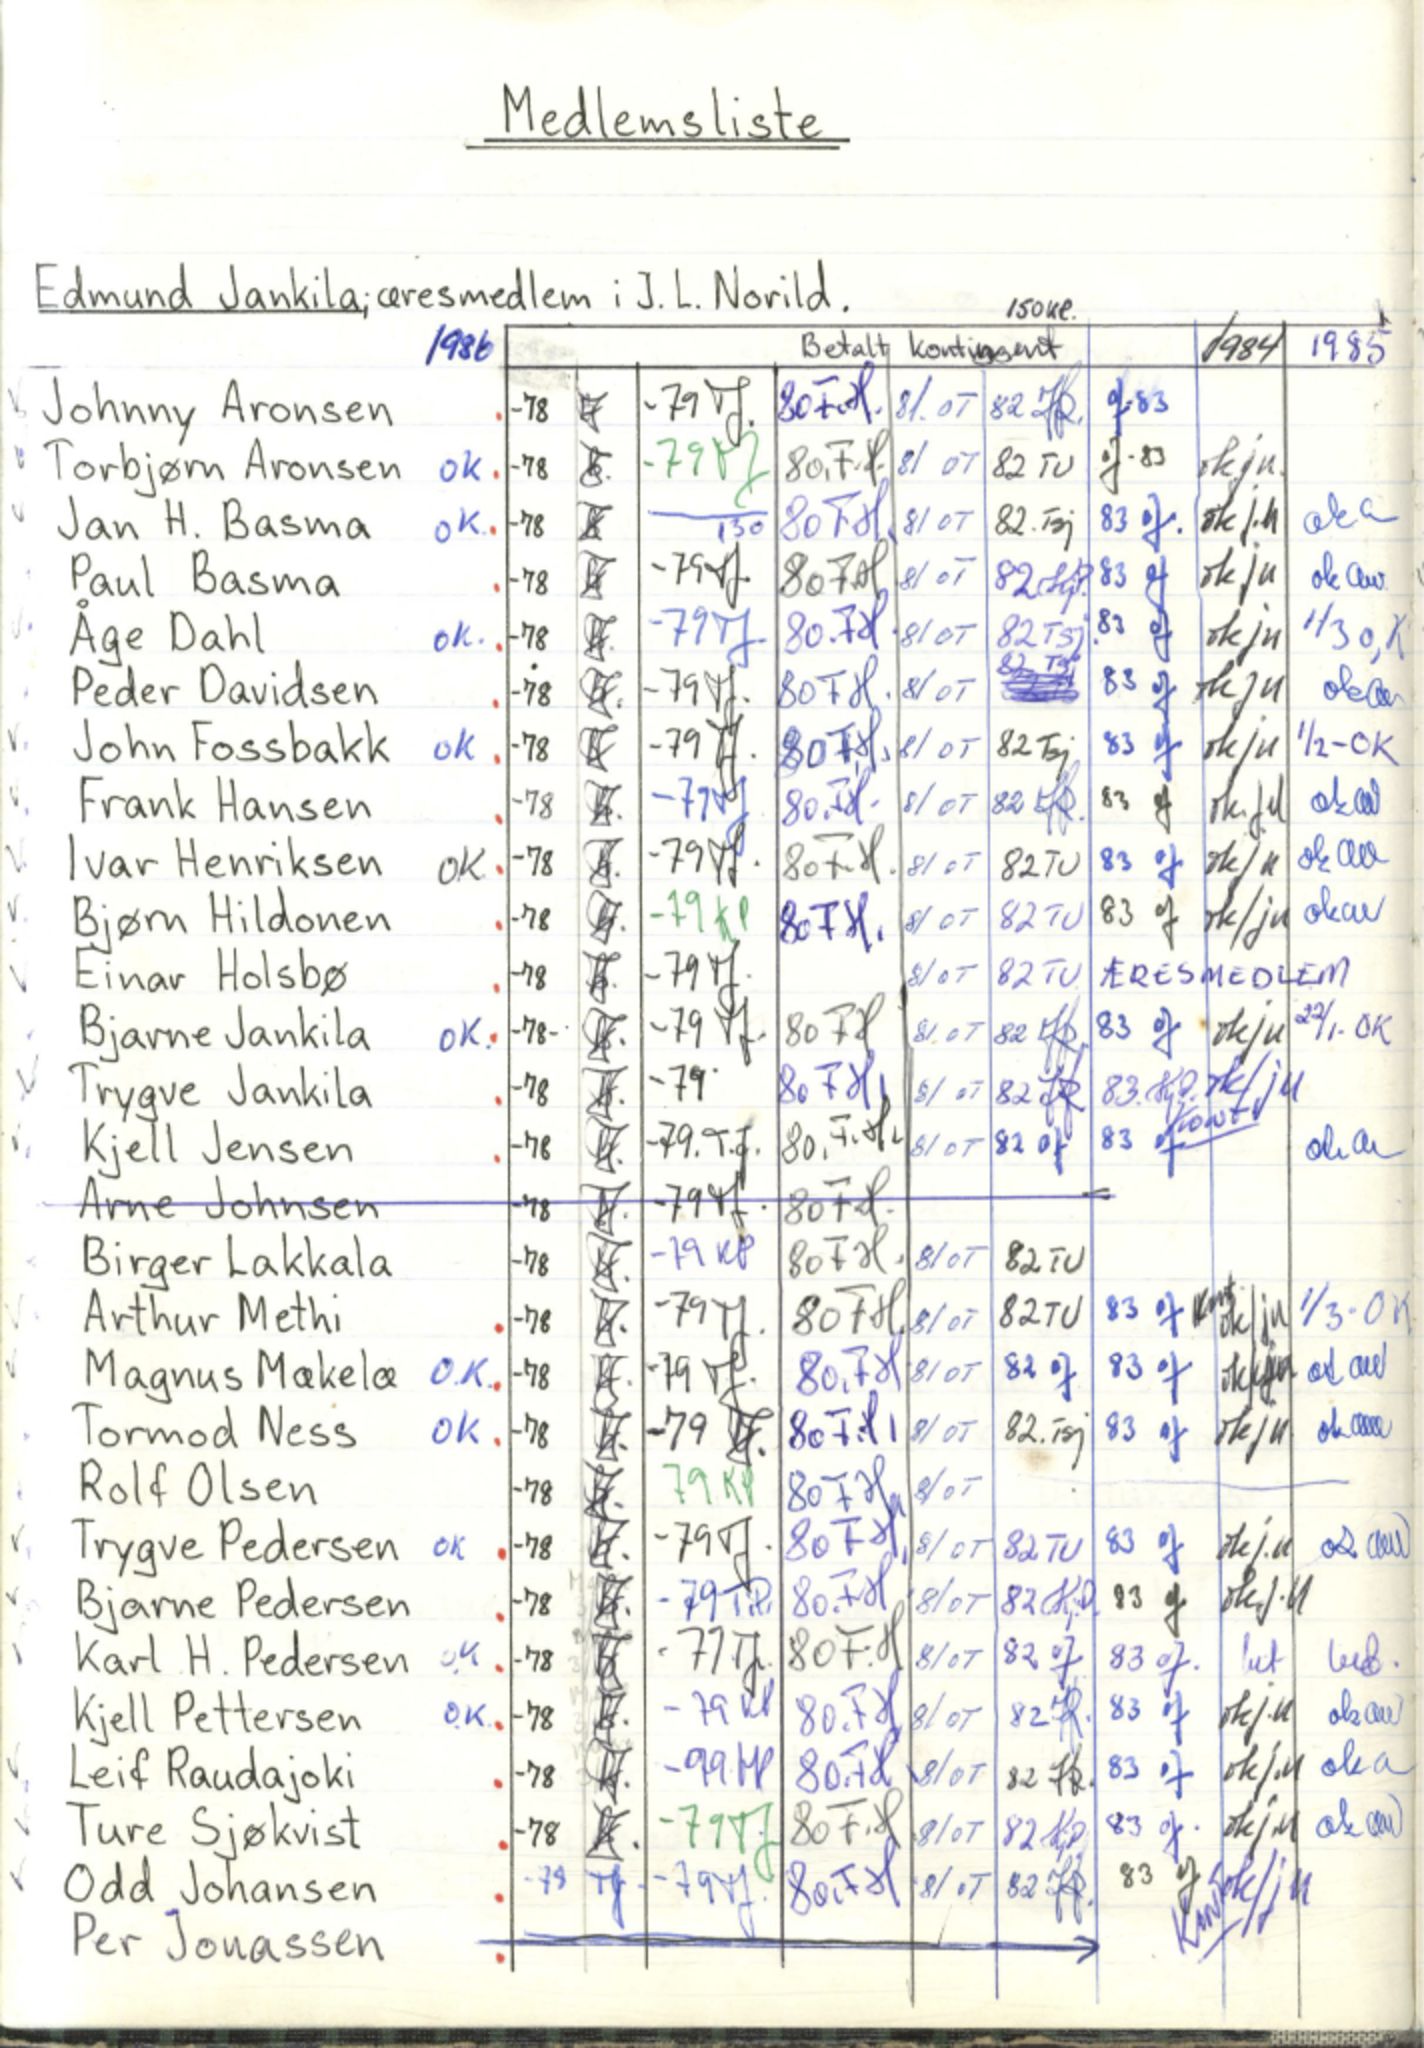 Medlemsliste
Edmund Jankila; æresmedlem i J. L. Norild.
150 kr.
1986 Betalt kontingent 1984 1985
Johnny Aronsen -78 -79 TJ. 80 F.H. 81. OT 82 of-83
Torbjørn Aronsen OK. -78 -79 TJ 80.F.H. 81 OT 82 TU of-83 ok ju.
Jan H. Basma OK. -78 130 80 F.H. 81 OT 82. Tsj 83 of. ok j.u ok a
Paul Basma -78 -79 TJ. 80 F.H 81 OT 82 83 of ok ju ok aw
Åge Dahl OK. -78 -79 TJ 80.F.H. 81 OT 82 Tsj. 83 of ok ju 1/3 O,K
Peder Davidsen -78 -79 TJ. 80 F.H. 81 OT 82 Tsj 83 of ok ju ok aw
John Fossbakk OK -78 -79 TJ. 80 F.H. 81 OT 82 Tsj 83 of ok ju 1/2-OK
Frank Hansen -78 -79 TJ 80.F.H. 81 OT 82 83 of ok.ju ok aw
Ivar Henriksen OK. -78 -79 TJ. 80 F.H. 81 OT 82 TU 83 of ok ju ok aw
Bjørn Hildonen -78 -79 KP 80 F.H. 81 OT 82 TU 83 of ok/ju ok aw
Einar Holsbø -78 -79 TJ. 81 OT 82 TU ÆRESMEDLEM
Bjarne Jankila OK. -78- -79 TJ. 80 F.H 81. OT 82 83 of ok ju 22/1-OK
Trygve Jankila -78 -79 80.F.H. 81 OT 82 83. ok/ju
Kjell Jensen -78 -79. T.J. 80.F.H. 81 OT 82 of 83 of Kont ok aw
Arne Johnsen -78 -79 TJ. 80 F.H.
Birger Lakkala -78 -79 KP 80 F.H. 81 OT 82 TU
Arthur Methi -78 -79 TJ. 80 F.H. 81 OT 82 TU 83 of Kont ok/ju 1/3-OK
Magnus Mækelæ O.K. -78 -79 TJ. 80.F.H 81 OT 82 of 83 of ok ju ok aw
Tormod Ness OK -78 -79 TJ. 80 F.H. 81 OT 82. Tsj 83 of ok ju ok aw
Rolf Olsen -78 79 KP 80 F.H. 81 OT
Trygve Pedersen OK -78 -79 TJ. 80 F.H. 81 OT 82 TU 83 of ok j.u ok aw
Bjarne Pedersen -78 -79 80.F.H 81 OT 82 83 of ok.j.u
Karl H. Pedersen OK -78 -79 TJ. 80 F.H 81 OT 82 of 83 of. bet
Kjell Pettersen O.K. -78 -79 KP 80.F.H 81 OT 82 83 of ok j.u ok aw
Leif Raudajoki -78 80.F.H 81 OT 82 83 of ok j.u ok a
Ture Sjøkvist -78 -79 TJ 80 F.H 81 OT 82 83 of. ok j.u ok aw
Odd Johansen -78 TJ -79 TJ. 80.F.H 81 OT 82 83 of Kont ok/ju
Per Jonassen